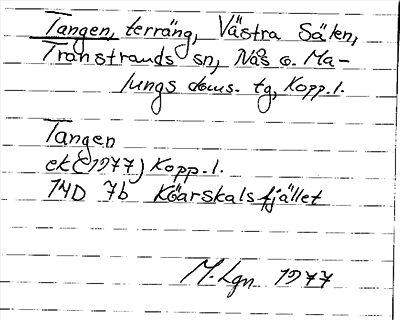 Tangen, terräng, Västra Sälen,
Transtrands sn, Nås o. Ma-
lungs doms. tg, Kopp.l.
Tangen
ek (1977) Kopp.l.
14D 7b Köarskalsfjället
M. Lgn 1977